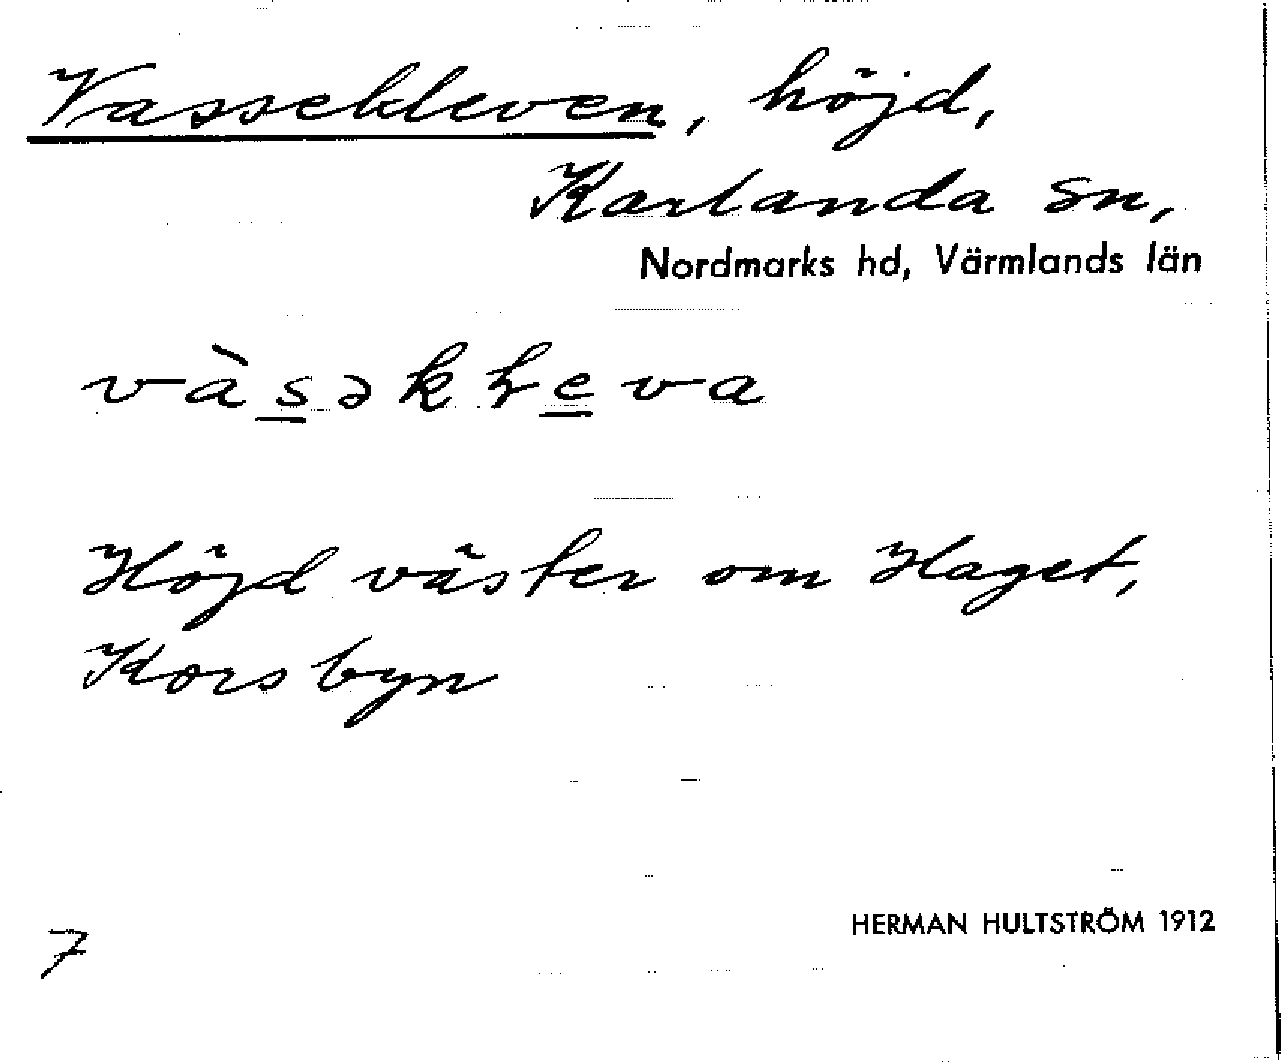 Vassekleven, höjd,
Karlanda sn,
Nordmarks hd, Värmlands län
vàsəkłeva
Höjd väster om Haget,
Korsbyn
7
HERMAN HULTSTRÖM 1912